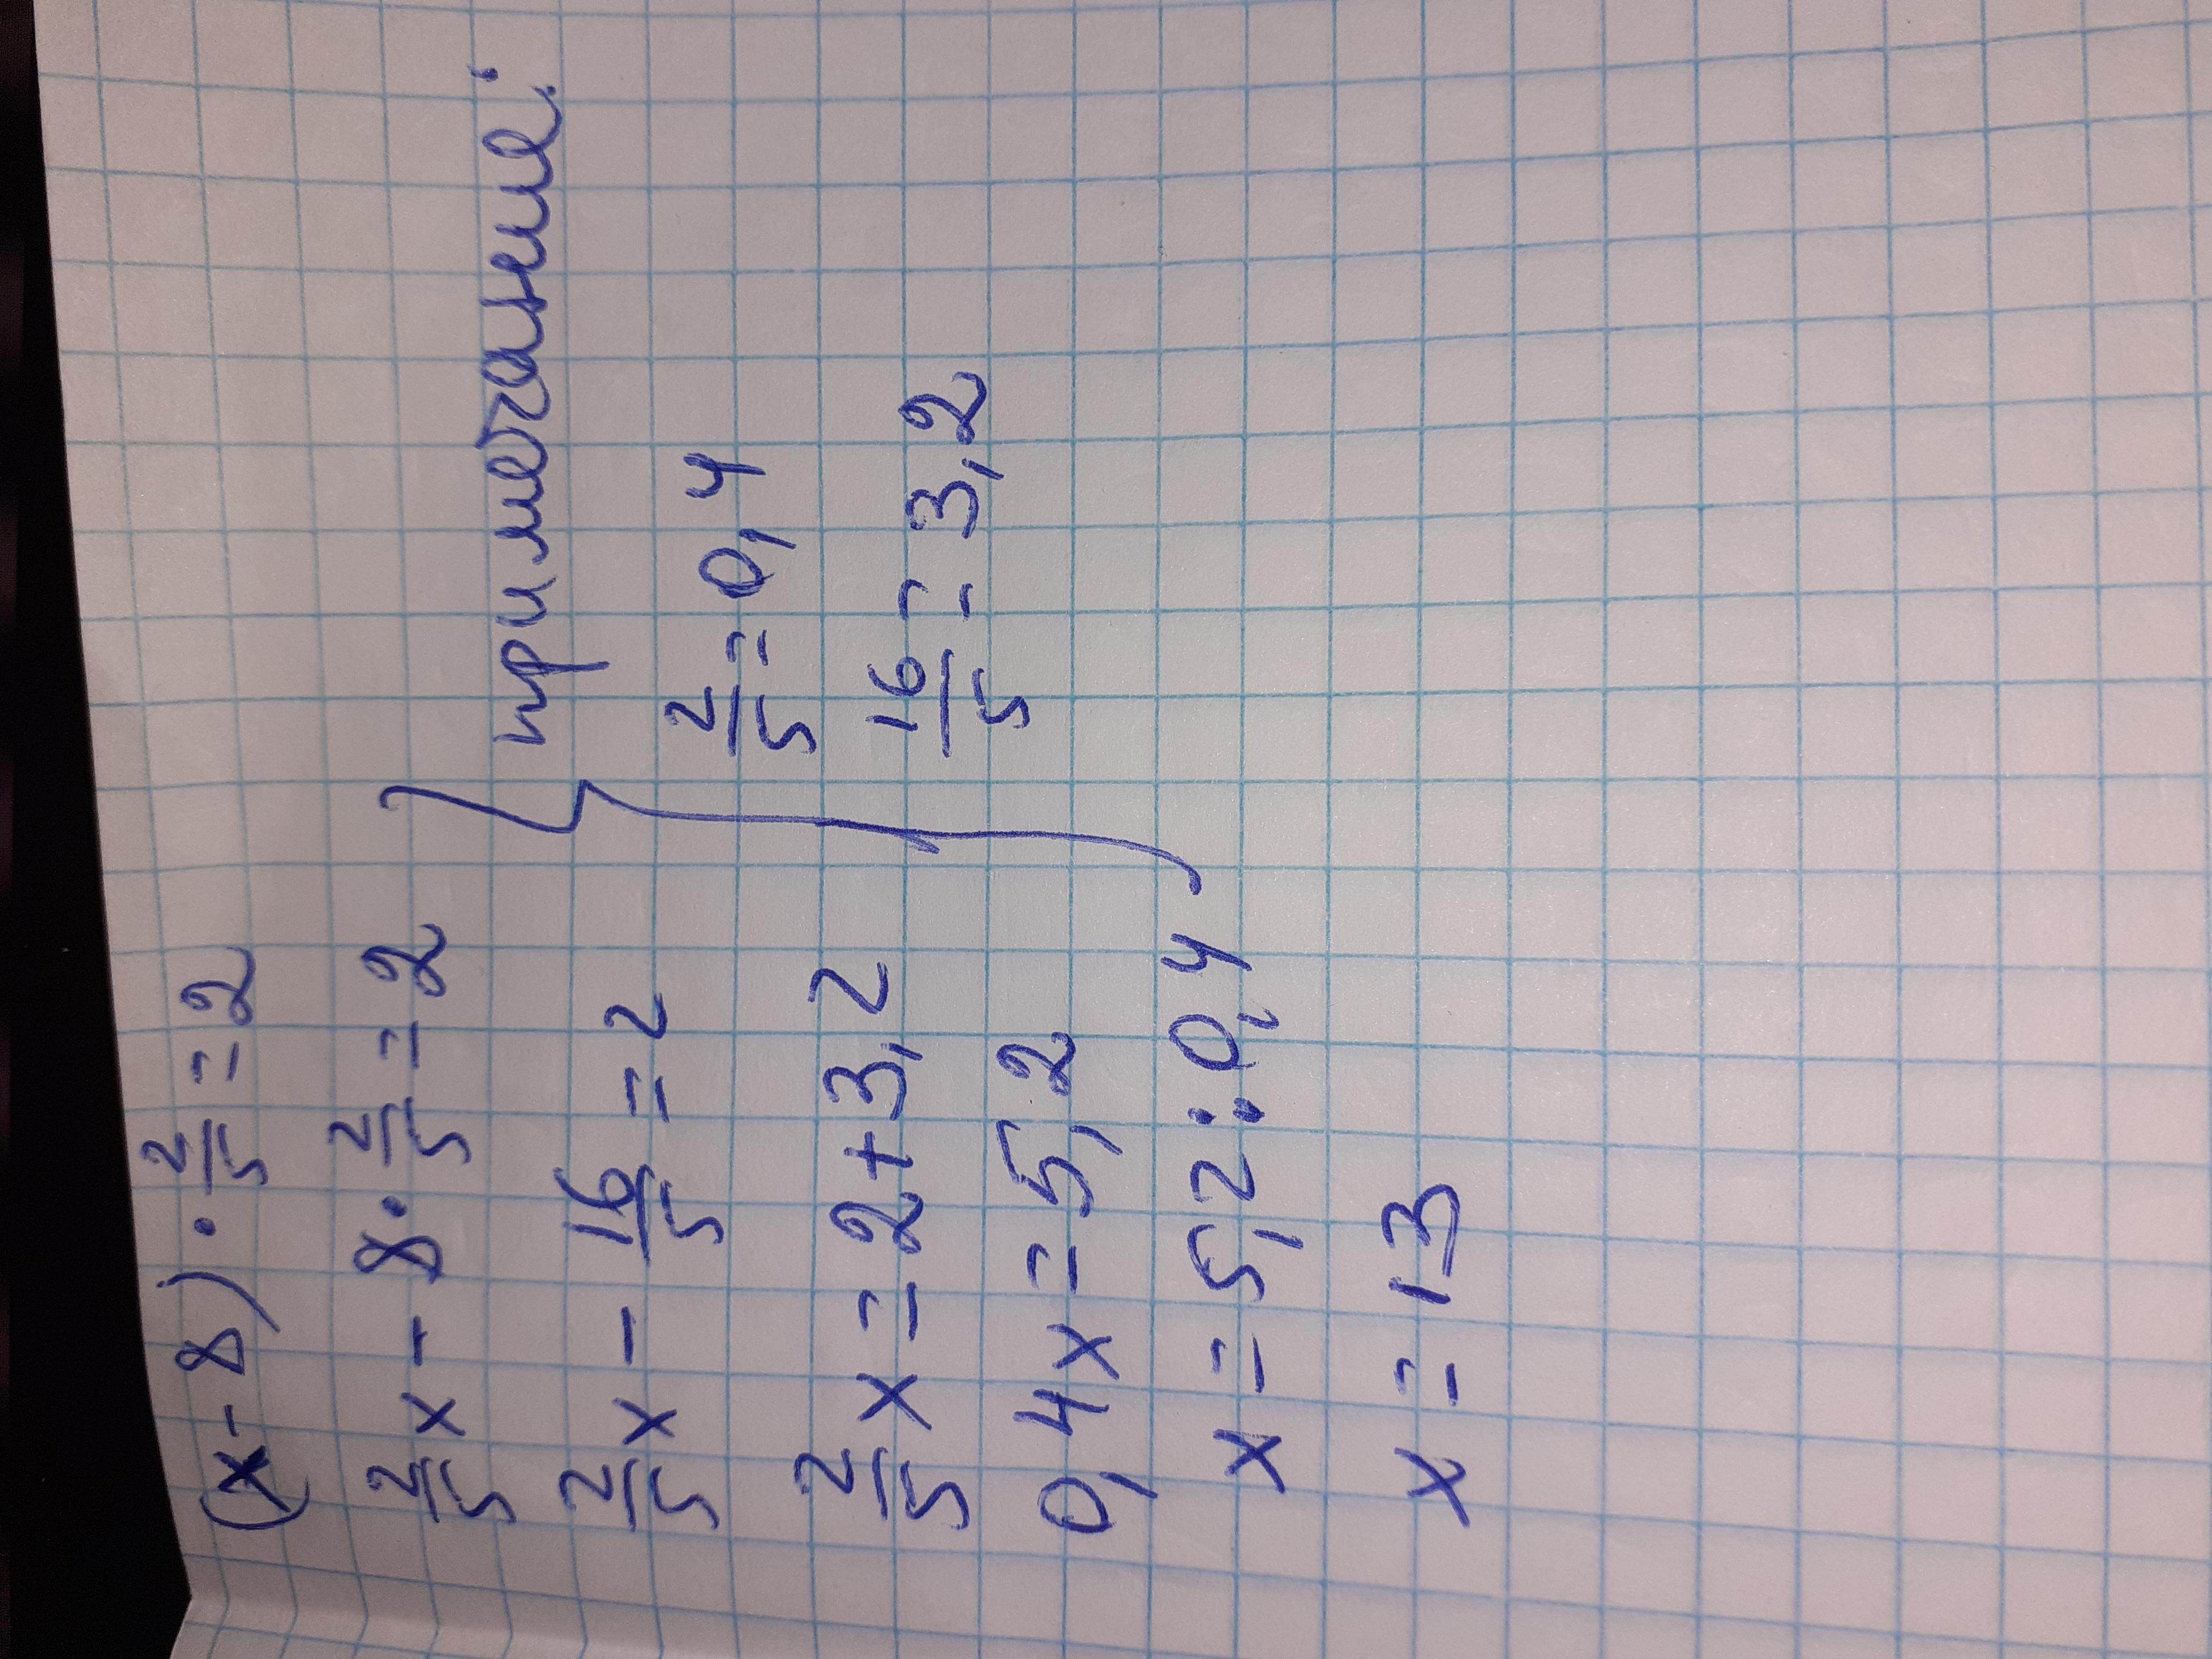 (x-8)·2/5=2
2/5x-8·2/5=2
2/5x-16/5=2
2/5x=2+3,2
0,4x=5,2
x=5,2:0,4
x=13
примечание:
2/5=0,4
16/5=3,2